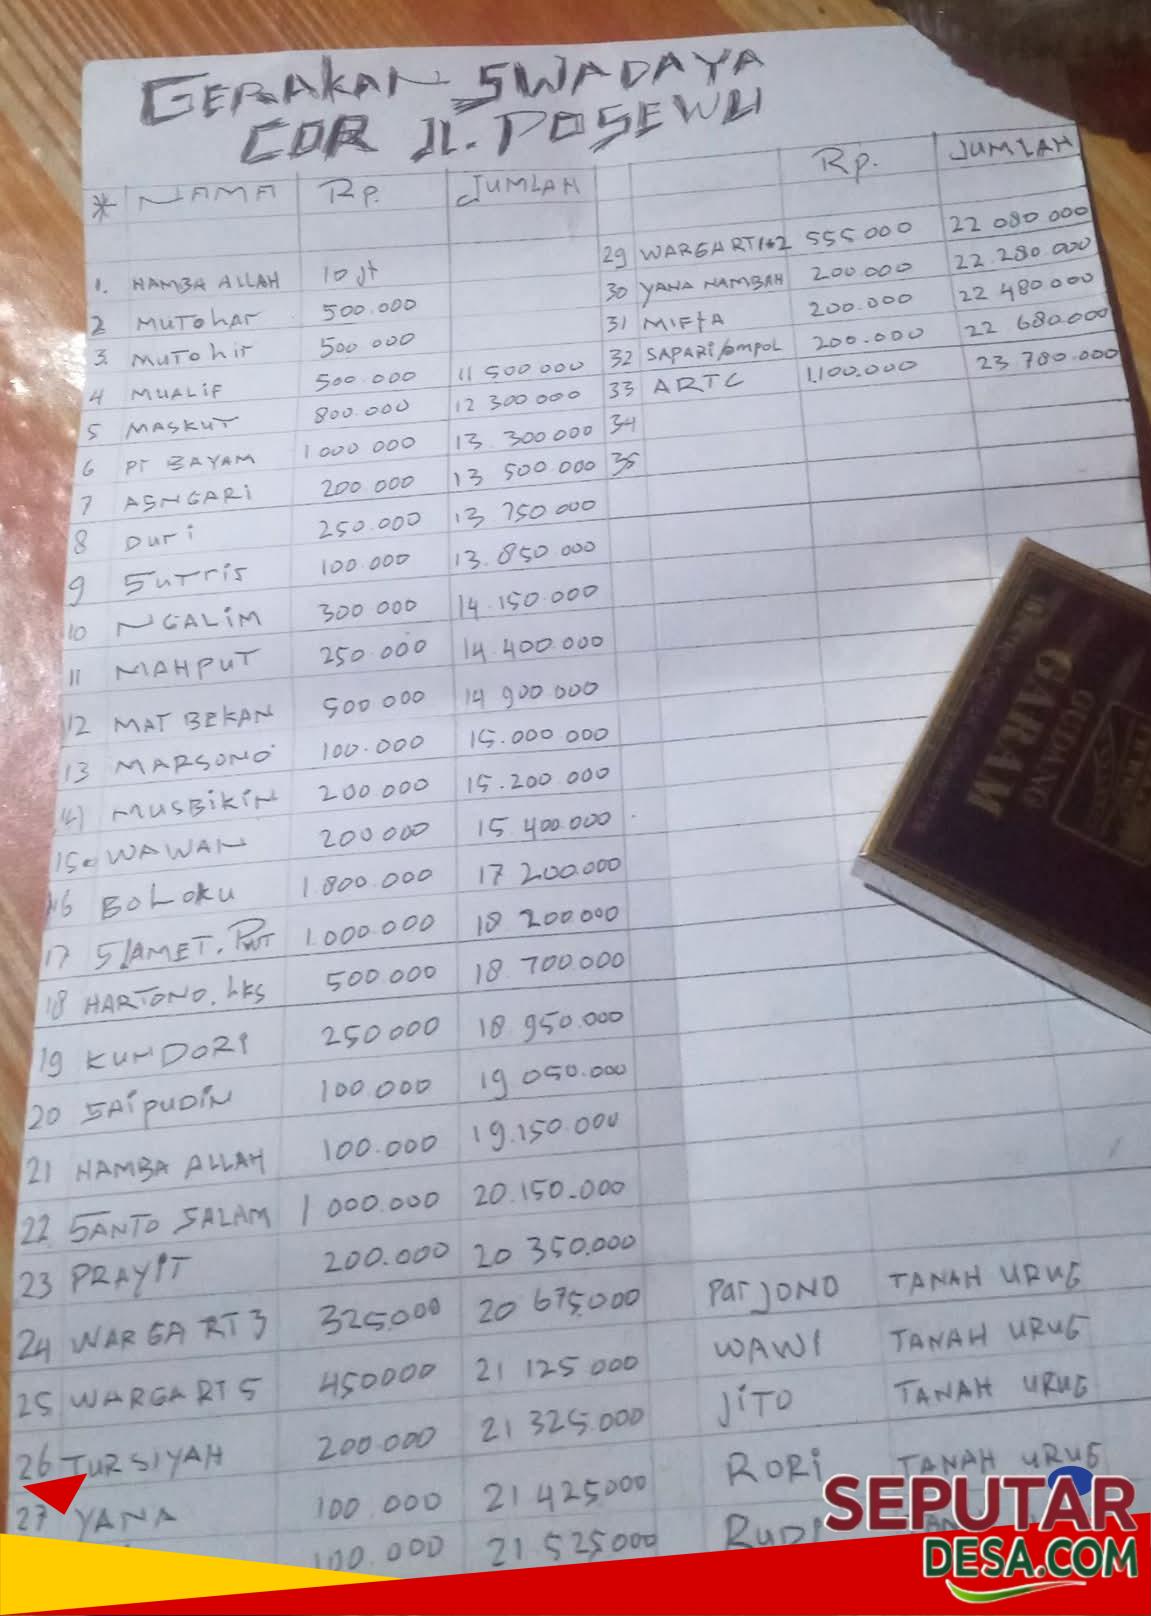 GERAKAN SWADAYA
COR JL. POSEWU
* NAMA Rp. JUMLAH
1. HAMBA ALLAH 10 jt
2 MUTOHAR 500.000
3. MUTOHIR 500 000
4 MUALIF 500.000 11 500 000
5 MASKUT 800.000 12 300 000
6 PT BAYAM 1 000 000 13 300 000
7 ASNGARI 200 000 13 500 000
8 DURI 250.000 13 750 000
9 SUTRIS 100.000 13.850 000
10 NGALIM 300 000 14.150.000
11 MAHPUT 250.000 14.400.000
12 MAT BEKAN 500 000 14 900 000
13 MARSONO 100.000 15.000 000
14 MUSBIKIN 200 000 15.200 000
15 WAWAN 200 000 15 400.000
16 BOLOKU 1.800.000 17 200.000
17 SLAMET. PWT 1.000.000 18 200 000
18 HARTONO. LKS 500.000 18 700.000
19 KUNDORI 250 000 18 950.000
20 SAIPUDIN 100.000 19 050.000
21 HAMBA ALLAH 100.000 19.150.000
22 SANTO SALAM 1 000.000 20.150.000
23 PRAYIT 200.000 20 350.000
24 WARGA RT 3 325.000 20 675.000
25 WARGA RT 5 450000 21 125 000
26 TURSIYAH 200.000 21 325.000
27 YANA 100.000 21 425000
100.000 21.525000
Rp. JUMLAH
29 WARGA RT 1+2 555 000 22 080 000
30 YANA NAMBAH 200.000 22.280.000
31 MIFTA 200.000 22 480 000
32 SAPARI/OMPOL 200.000 22 680.000
33 ARTC 1.100.000 23 780.000
34
35
PARJONO TANAH URUG
WAWI TANAH URUG
JITO TANAH URUG
RORI TANAH URUG
GUDANG
GARAM
SEPUTAR
DESA.COM